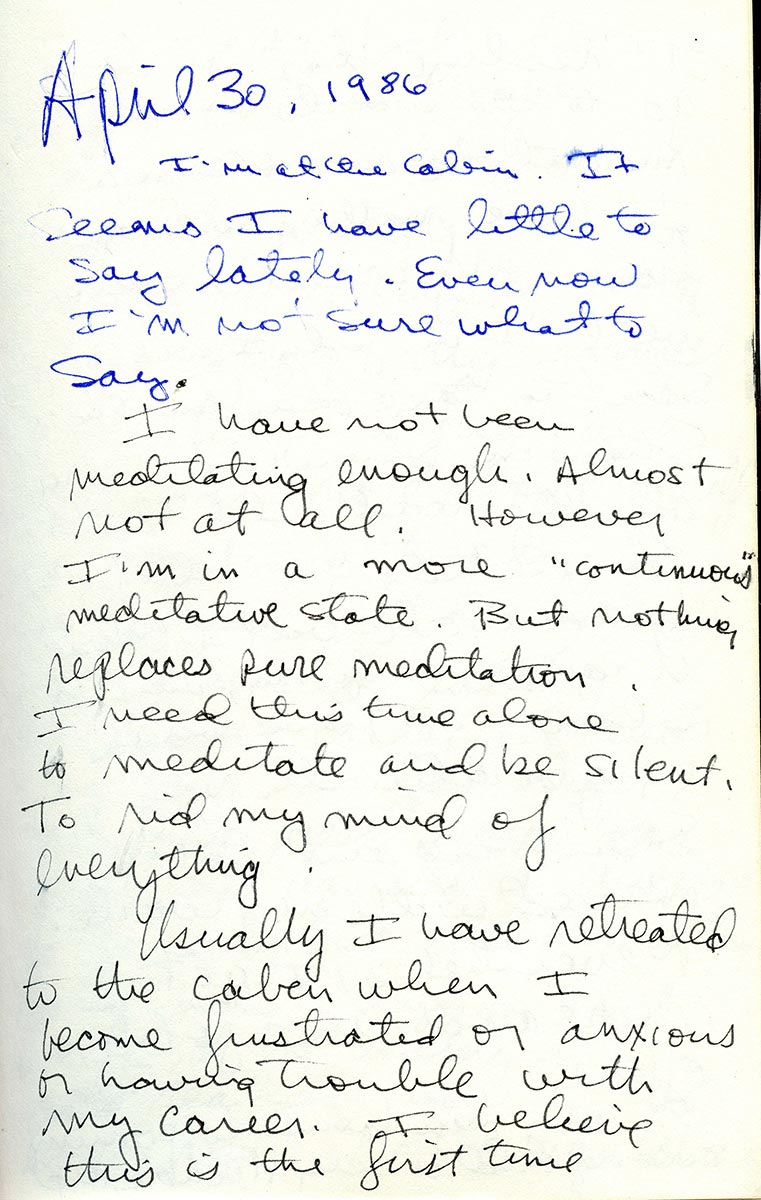 April 30, 1986
I'm at the cabin. It
seems I have little to
say lately. Even now
I'm not sure what to
say.
I have not been
meditating enough. Almost
not at all. However
I'm in a more "continuous"
meditative state. But nothing
replaces pure meditation.
I need this time alone
to meditate and be silent.
To rid my mind of
everything.
Usually I have retreated
to the caben when I
become frustrated or anxious
or having trouble with
my career. I believe
this is the first time